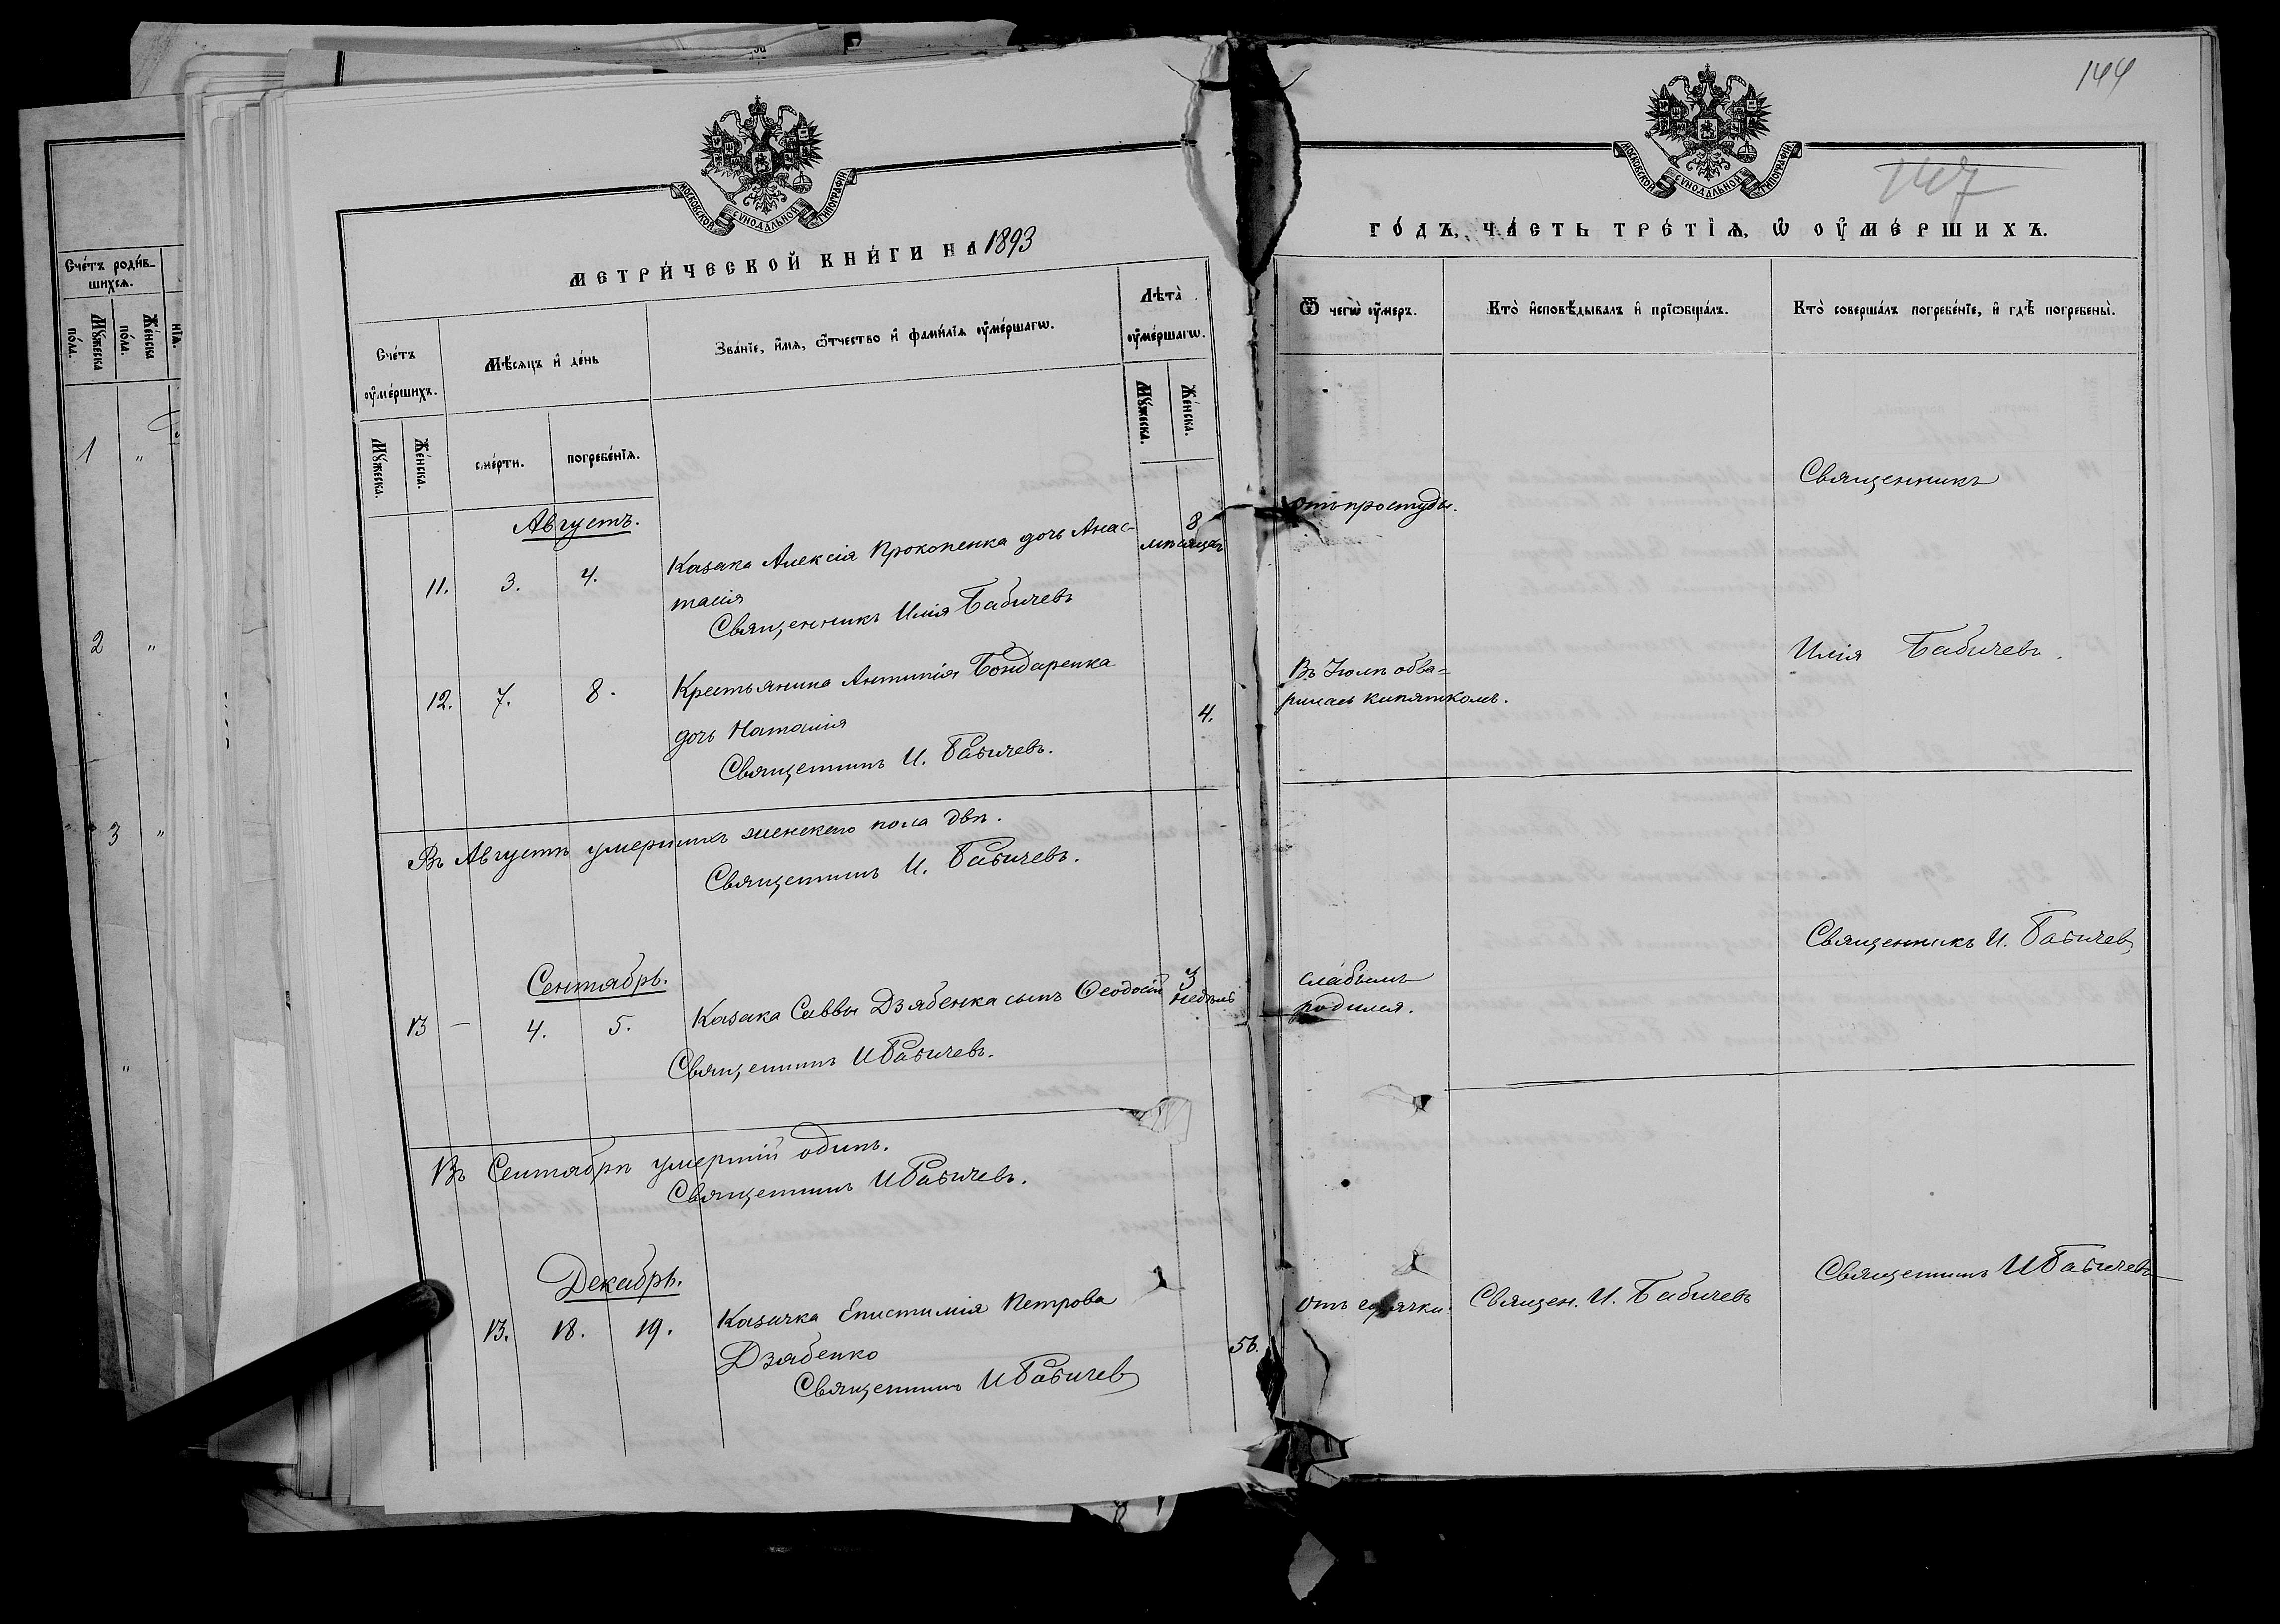 Счéтъ роди́в-
шихсѧ.
Мꙋ́жеска
по́ла.
Же́нска
по́ла.
1 "
2 "
3 "
"
МОСКОВСКОЙ СѴНОДАЛЬНОЙ ТИПОГРАФІИ
МЕТРИ́ЧЕСКОЙ КНИ́ГИ НА 1893
Счéтъ
оу҆мéршихъ.
Мꙋ́жеска.
Же́нска.
Мѣ́сѧцъ и҆ дéнь
смéрти.
погребéнїѧ.
Звáнїе, и҆́мѧ, ѻ҆́тчество и҆ фами́лїѧ оу҆мéршагѡ.
Лѣ̑та
оу҆мéршагѡ.
Мꙋ́жеска.
Же́нска.
Августъ.
11. 3. 4. Казака Алексія Прокопенка дочь Анас- 8
тасія мѣсяцевъ
Священникъ Илія Бабичевъ
12. 7. 8. Крестьянина Антипія Бондаренка
дочь Наталія 4.
Священникъ И. Бабичевъ.
Въ Августѣ умершихъ женскаго пола двѣ.
Священникъ И. Бабичевъ.
Сентябрь.
13 – 4. 5. Казака Саввы Дзябенка сынъ Ѳеодосій 3 недѣль
Священникъ И Бабичевъ.
Въ Сентябрѣ умершій одинъ.
Священникъ И Бабичевъ.
Декабрь.
13. 18. 19. Казачка Епистимія Петрова
Дзябенко 56.
Священникъ И Бабичевъ
144
147
МОСКОВСКОЙ СѴНОДАЛЬНОЙ ТИПОГРАФІИ
ГО́ДЪ, ЧА́СТЬ ТРЕ́ТЇѦ, Ѡ҆ ОУ҆МЕ́РШИХЪ.
Ѿ чегѡ̀ оу҆́меръ.
Ктò и҆сповѣ́дывалъ и҆ прїѡбщáлъ.
Ктò совершáлъ погребéнїе, и҆ гдѣ̀ погребены̀.
отъ простуды.
Священникъ
Илія Бабичевъ.
Въ Іюлѣ обва-
рилась кипяткомъ.
Священникъ И. Бабичевъ
слабымъ
родился.
отъ горячки. Священ. И. Бабичевъ Священникъ И Бабичевъ